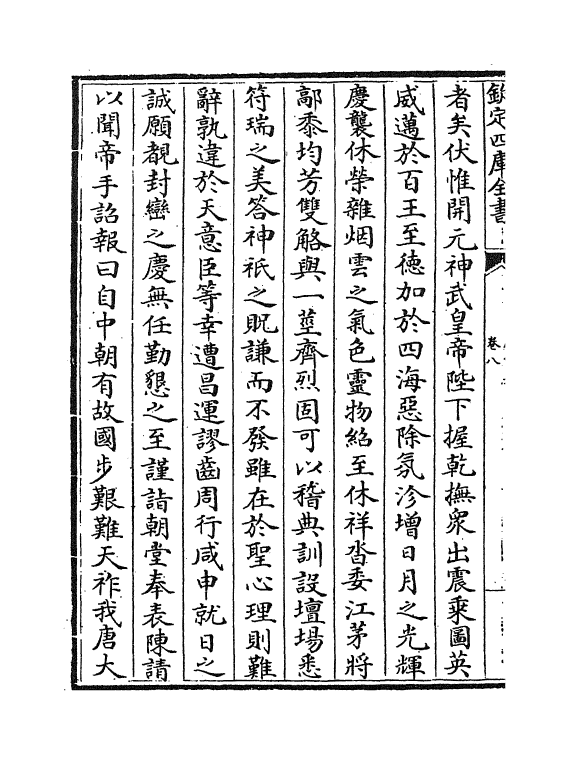 欽定四庫全書
卷八
者矣伏惟開元神武皇帝陛下握乾撫衆出震乘圖英
威邁於百王至德加於四海惡除氛沴增日月之光輝
慶襲休榮雜烟雲之氣色靈物紹至休祥沓委江茅將
鄗黍均芳雙觡與一莖齊烈固可以稽典訓設壇場悉
符瑞之美答神祇之貺謙而不發雖在於聖心理則難
辭孰違於天意臣等幸遭昌運謬齒周行咸申就日之
誠願覩封巒之慶無任勤懇之至謹詣朝堂奉表陳請
以聞帝手詔報曰自中朝有故國步艱難天祚我唐大